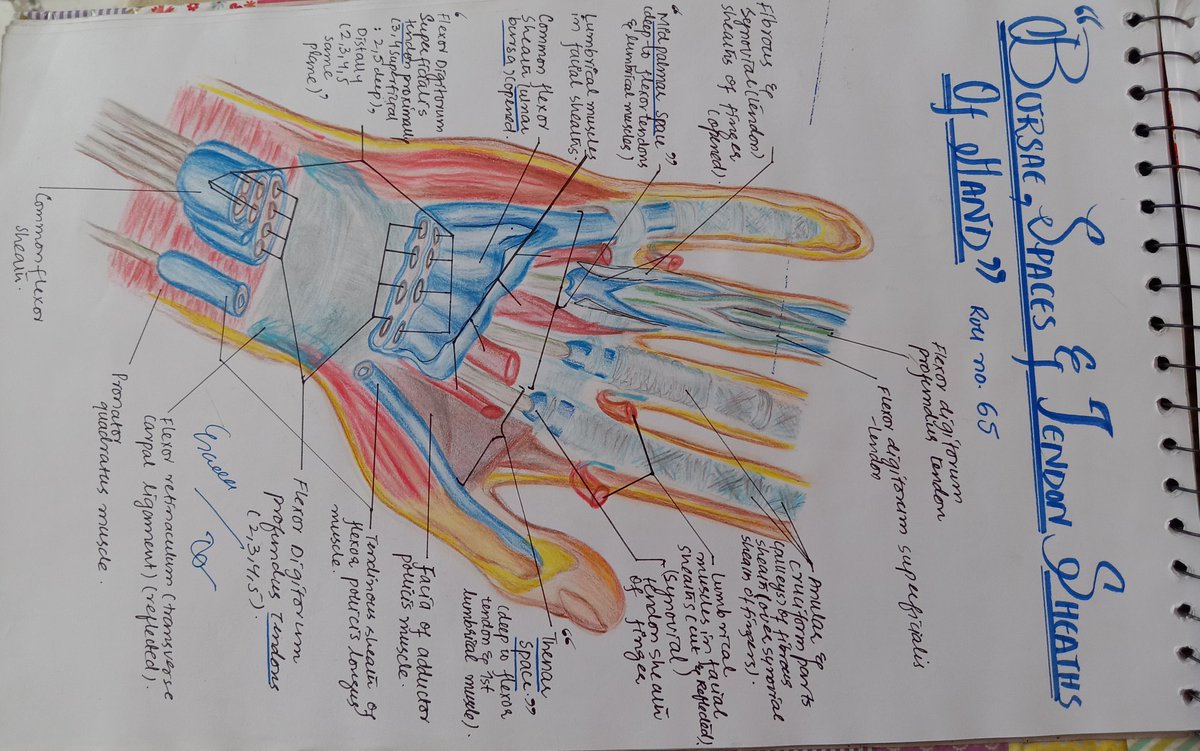 "BURSAE, SPACES & TENDON SHEATHS
OF HAND" Roll no. 65
Fibrous &
synovial (tendon)
sheaths of finger
(opened).
"Midpalmar space"
(deep to flexor tendons
& lumbrical muscles)
Lumbrical muscles
in facial sheaths
Common flexor
sheath (ulnar
bursa) (opened
Flexor Digitorum
Superficialis
tendon proximally
(3,4 superficial
: 2,5 deep),
Distally
(2,3,4,5
same
plane)"
Common flexor
sheath.
Flexor digitorum
profundus tendon
Flexor digitorum superficialis
-tendon
Anular &
cruciform parts
(pulleys of fibrous
sheath (over synovial
sheath of fingers).
Lumbrical
muscles in facial
sheaths (cut & Reflected)
(synovial)
tendon sheath
of finger
"Thenar
Space"
(deep to flexor
tendon & 1st
lumbrical muscle).
Facia of adductor
pollicis muscle.
Tendinous sheath of
flexor pollicis longus
muscle.
Flexor Digitorum
profundus tendons
(2,3,4,5).
Flexor retinaculum (transverse
carpal ligament) (reflected).
Pronator
quadratus muscle.